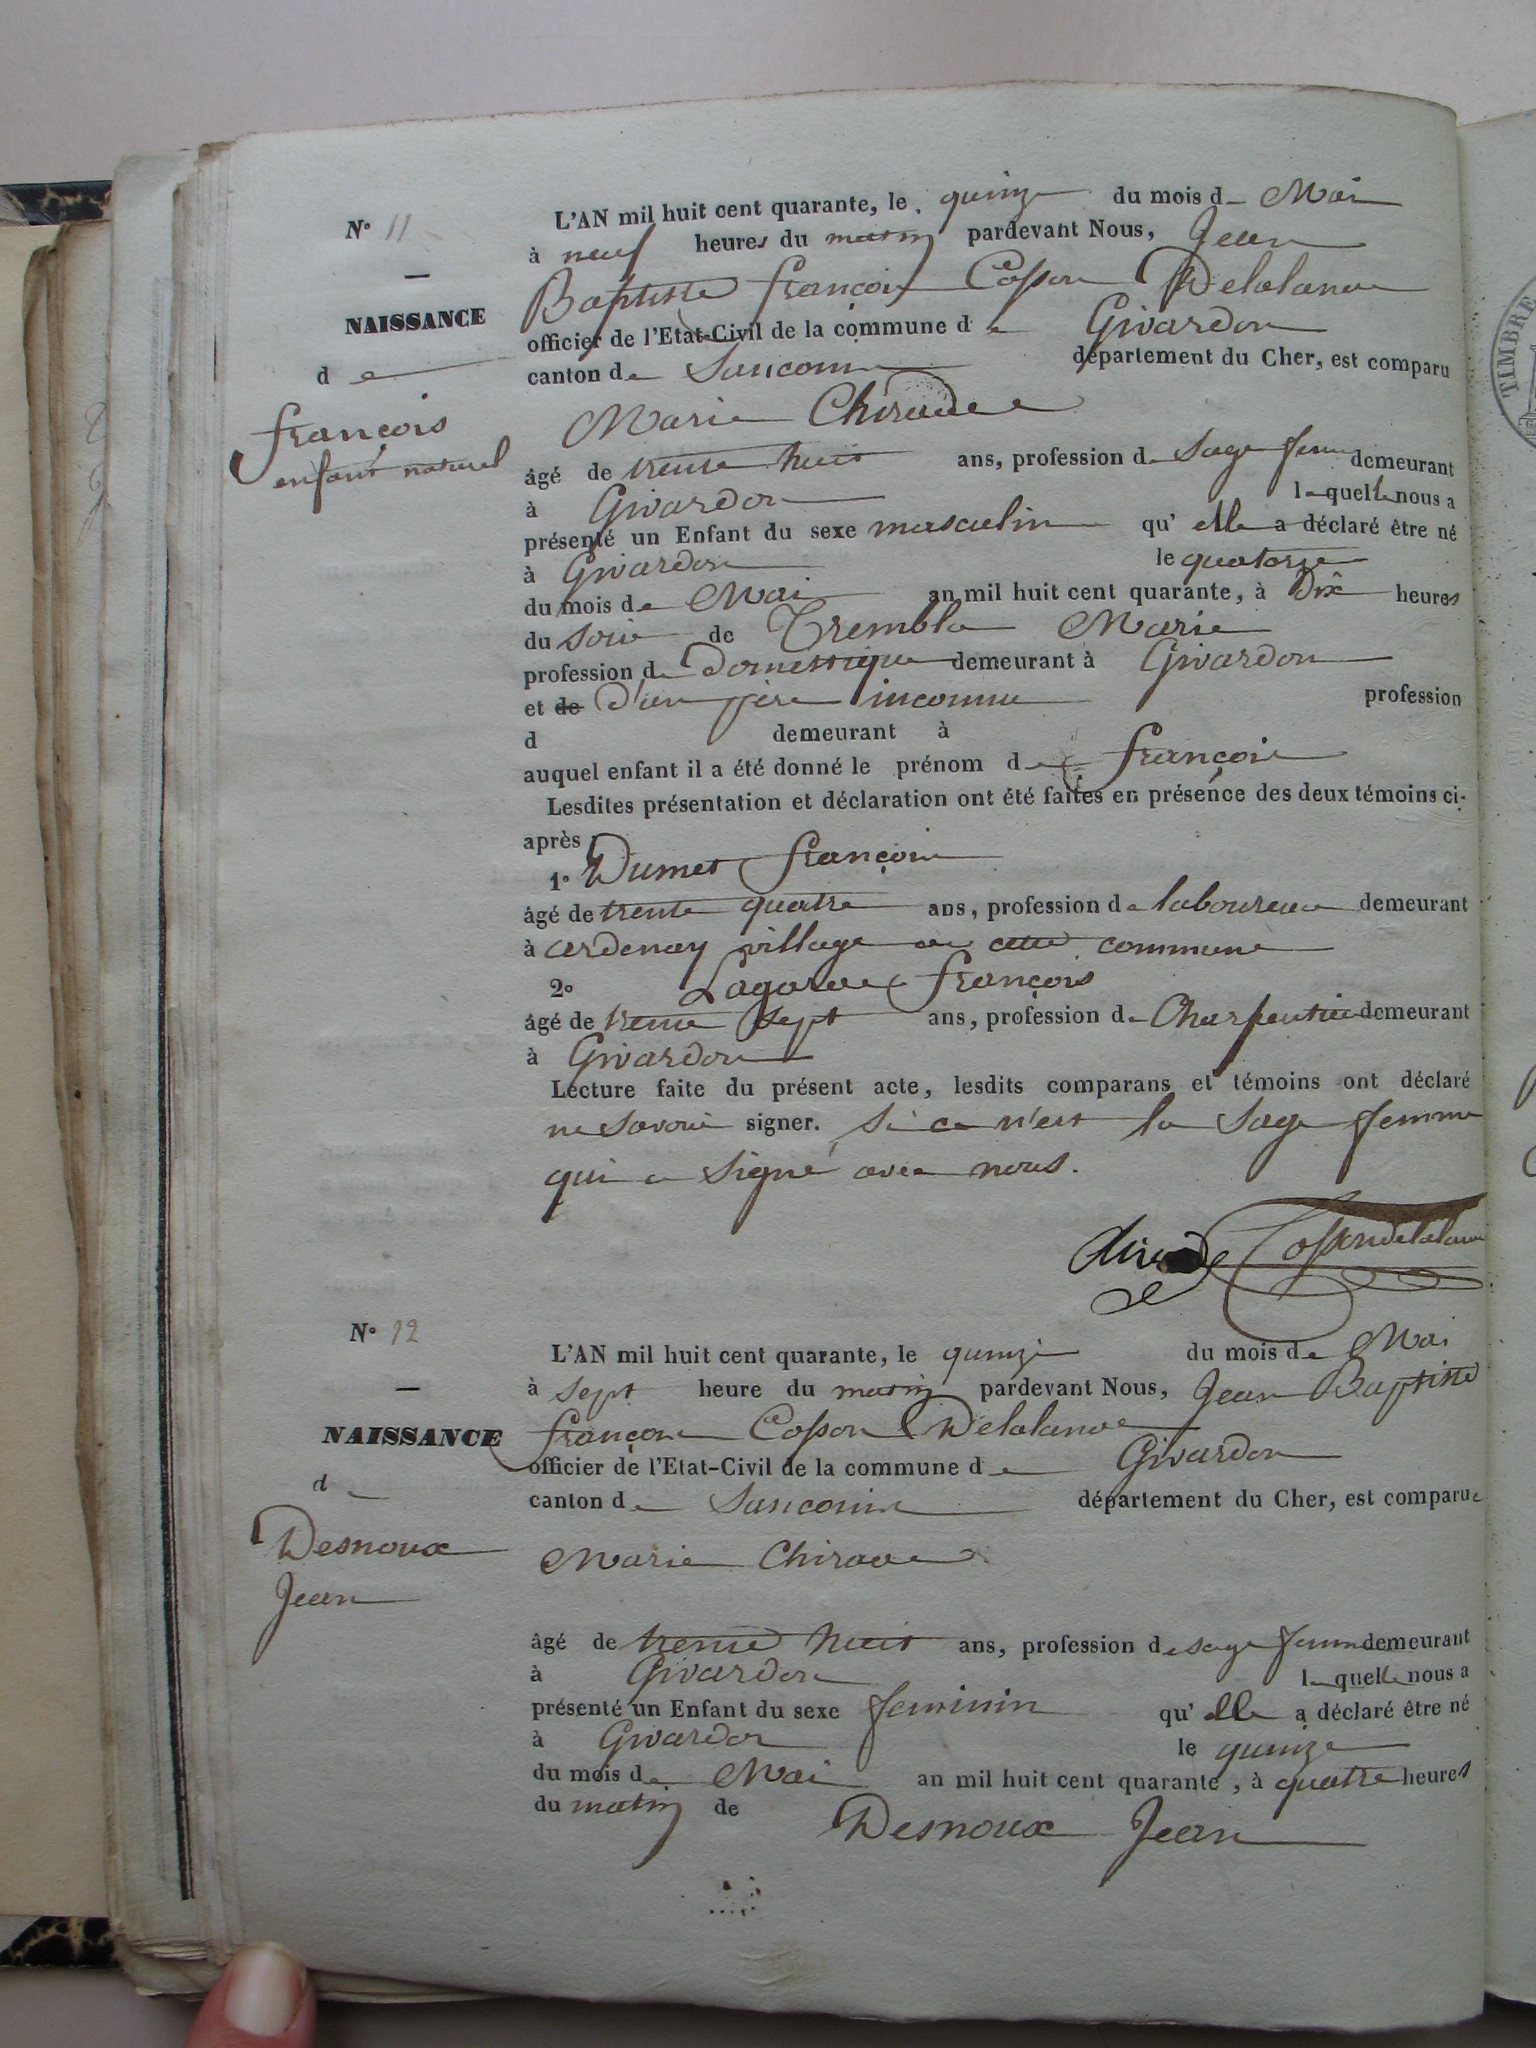 N° 11
NAISSANCE
d e
françois
enfant naturel
L'AN mil huit cent quarante, le quinze du mois de Mai
à neuf heures du matin pardevant Nous, Jean
Baptiste françois Cosson Delalande
officier de l'Etat-Civil de la commune de Givardon
canton de Sancoins département du Cher, est comparu
Marie Chirade
âgé de trente huit ans, profession de Sage femme demeurant
à Givardon laquelle nous a
présenté un Enfant du sexe masculin qu'elle a déclaré être né
à Givardon le quatorze
du mois de Mai an mil huit cent quarante, à Dix heures
du soir de Trembla Marie
profession de Domestique demeurant à Givardon
et de D'un père inconnu profession
d demeurant à
auquel enfant il a été donné le prénom de françois
Lesdites présentation et déclaration ont été faites en présence des deux témoins ci-
après
1° Dumet françois
âgé de trente quatre ans, profession de laboureur demeurant
à ardenay village de cette commune
2° Lagarde françois
âgé de trente sept ans, profession de Charpentier demeurant
à Givardon
Lecture faite du présent acte, lesdits comparans et témoins ont déclaré
ne savoir signer. Si ce n'est la Sage femme
qui a signé avec nous.
Chirade Cossondelalande
N° 12
NAISSANCE
d e
Desnoux
Jean
L'AN mil huit cent quarante, le quinze du mois de Mai
à sept heure du matin pardevant Nous, Jean Baptiste
françois Cosson Delalande
officier de l'Etat-Civil de la commune de Givardon
canton de Sancoins département du Cher, est comparue
Marie Chirade
âgé de trente huit ans, profession de sage femme demeurant
à Givardon laquelle nous a
présenté un Enfant du sexe feminin qu'elle a déclaré être né
à Givardon le quinze
du mois de Mai an mil huit cent quarante, à quatre heures
du matin de Desnoux Jean
TIMBRE